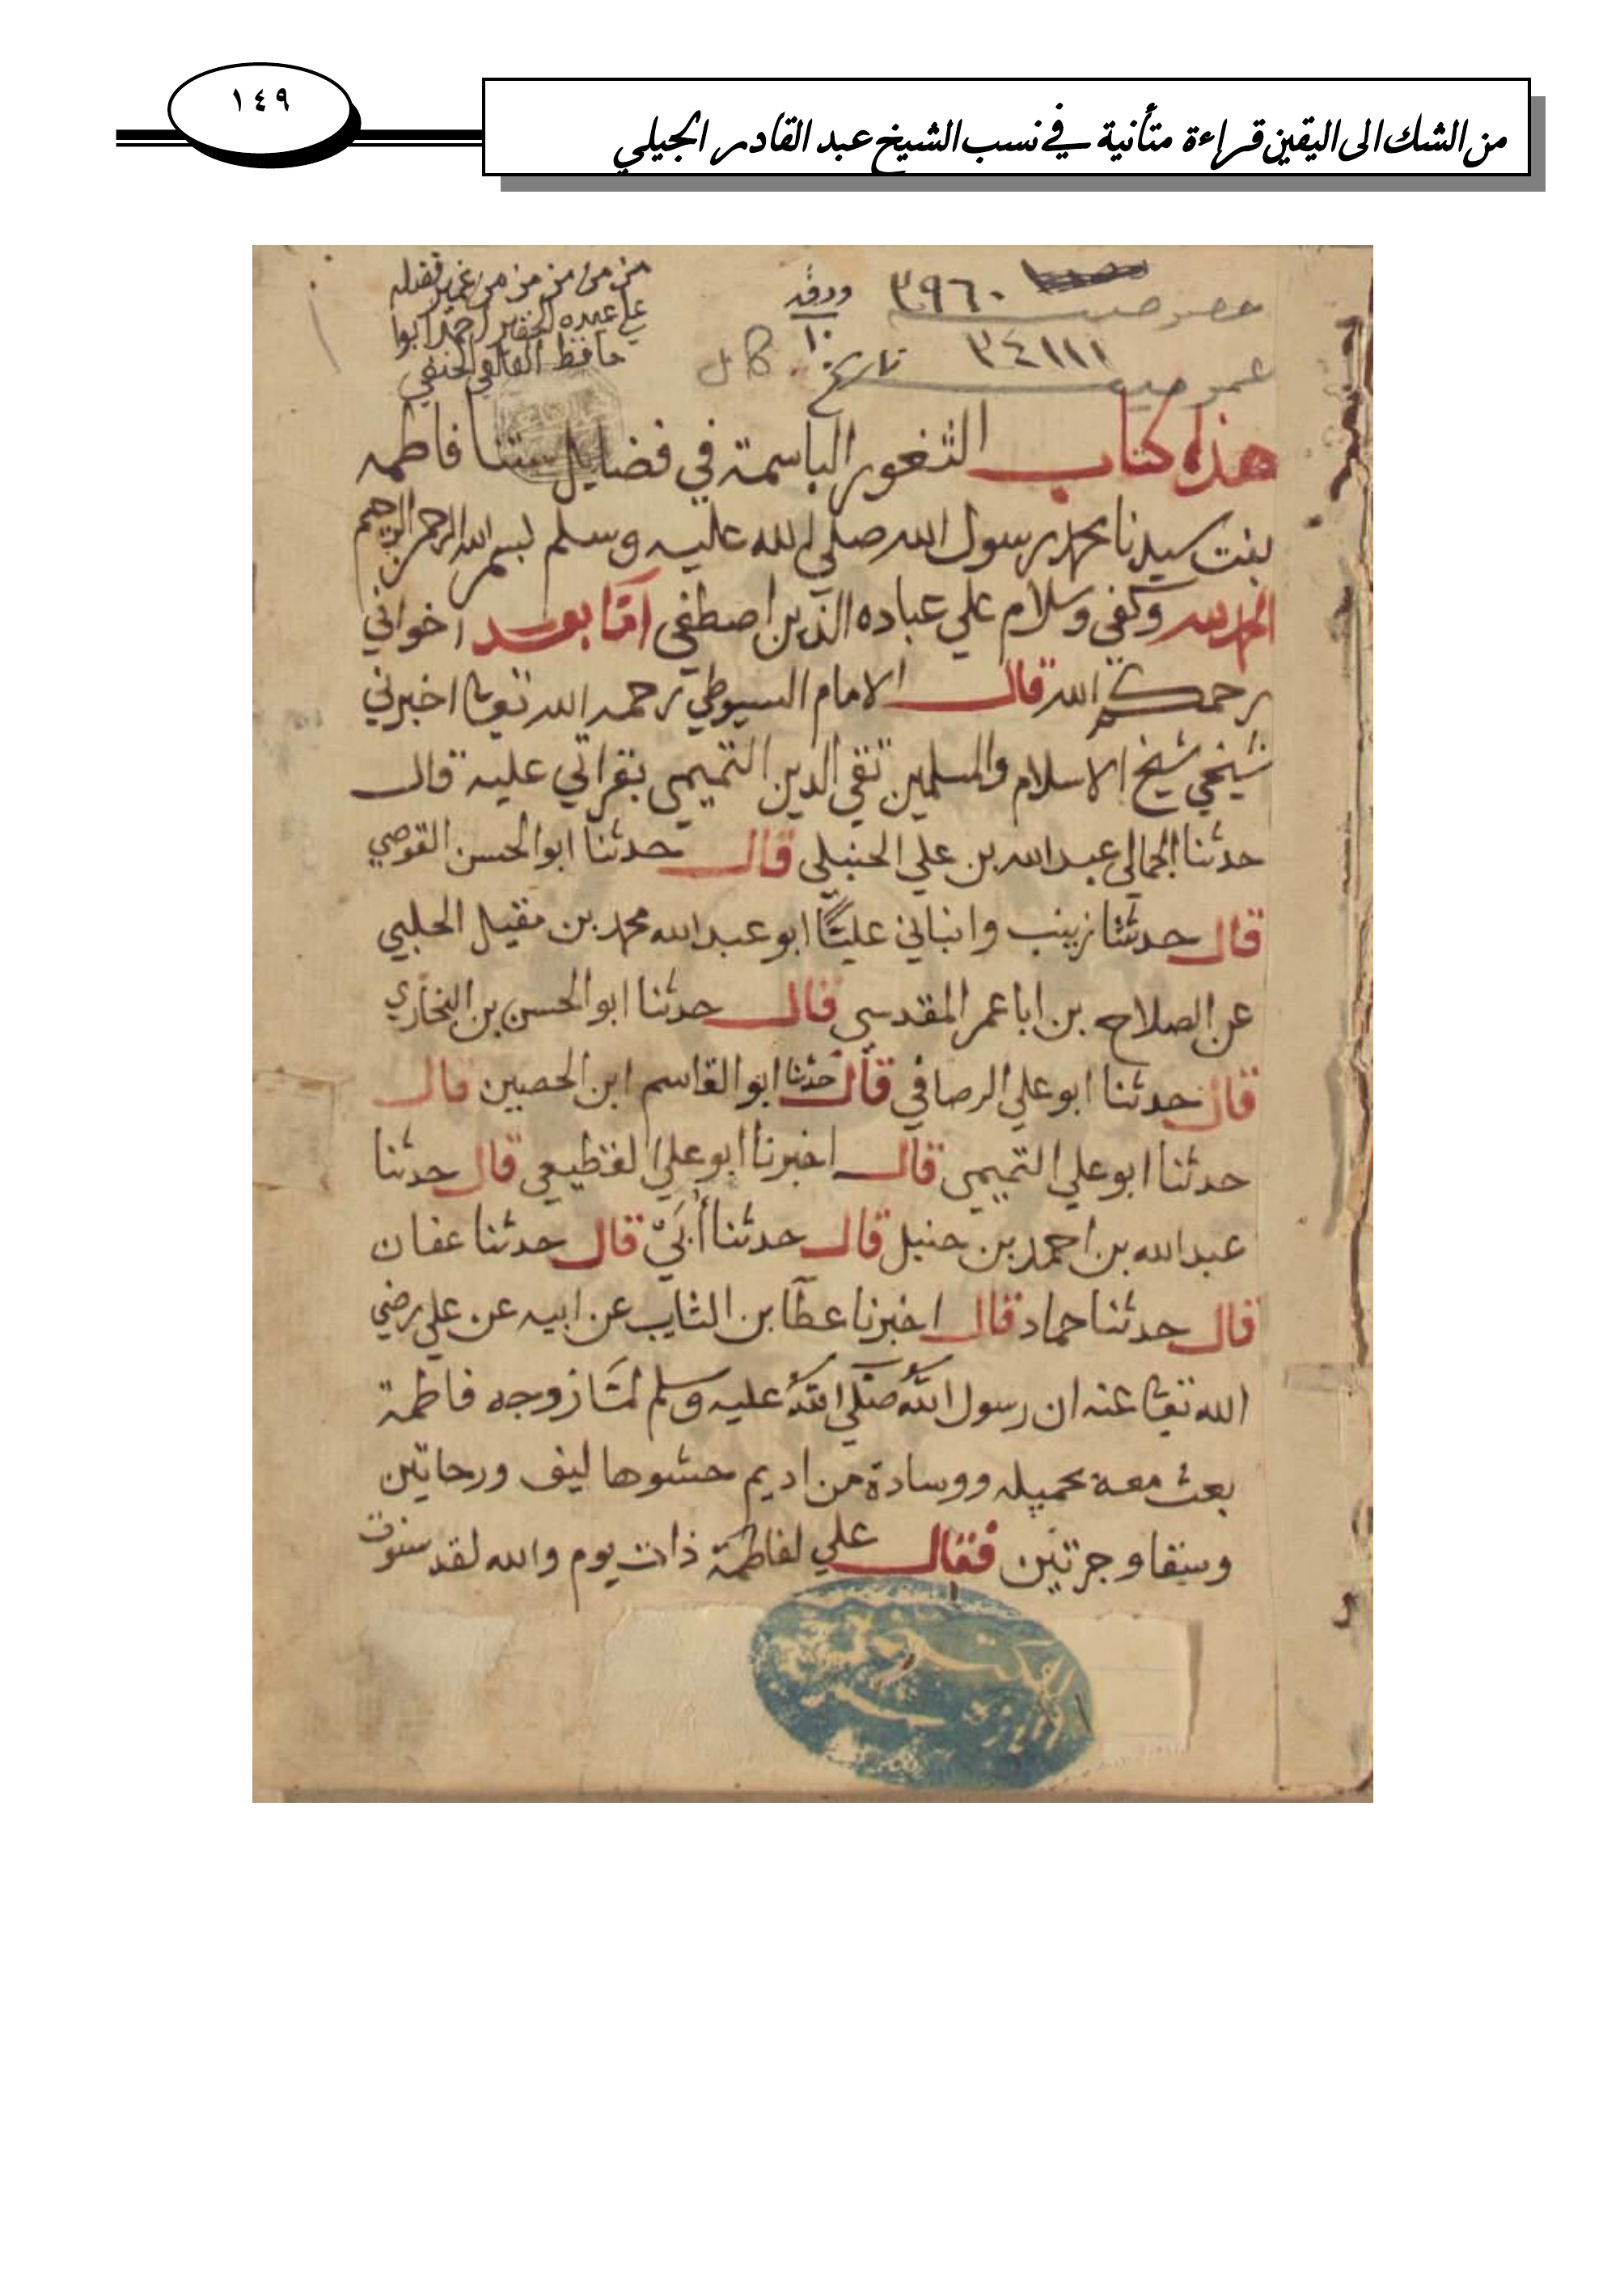 ١٤٩
من الشك الى اليقين قراءة متأنية في نسب الشيخ عبد القادر الجيلي
خصوصيه ٣٩٦٠ ورقه ١٠
عموميه ٣٤١١١ تاريخ كامل
من من من من من غمير فضله
علي عبده الحقير احمد ابوا
حافظ الحنفي
هذا كتاب الثغور الباسمة في فضايل ستنا فاطمه
بنت سيدنا محمد رسول الله صلي الله عليه وسلم بسم الله الرحمن الرحيم
الحمد لله وكفي وسلام علي عباده الذين اصطفي اما بعد اخواني
رحمكم الله قال الامام السيوطي رحمه الله تعا اخبرني
شيخي شيخ الاسلام والمسلمين تقي الدين التميمي بقراتي عليه قال
حدثنا الجمالي عبد الله بن علي الحنبلي قال حدثنا ابو الحسن القوصي
قال حدثتنا زينب وانباني عليًّا ابو عبد الله محمد بن مقيل الحلبي
عن الصلاح بن ابا عمر المقدسي قال حدثنا ابو الحسن بن البخاري
قال حدثنا ابو علي الرصافي قال حدثنا ابو القاسم ابن الحصين قال
حدثنا ابو علي التميمي قال اخبرنا ابو علي القطيعي قال حدثنا
عبد الله بن احمد بن حنبل قال حدثنا أُبَيّ قال حدثنا عفان
قال حدثنا حماد قال اخبرنا عطآ بن الثايب عن ابيه عن علي رضي
الله تعا عنه ان رسول الله صلي الله عليه وسلم لمّا زوجه فاطمة
بعث معه بخميله ووسادة من اديم حشوها ليف ورحايتين
وسقا وجرتين فقال علي لفاطمة ذات يوم والله لقد سنوت